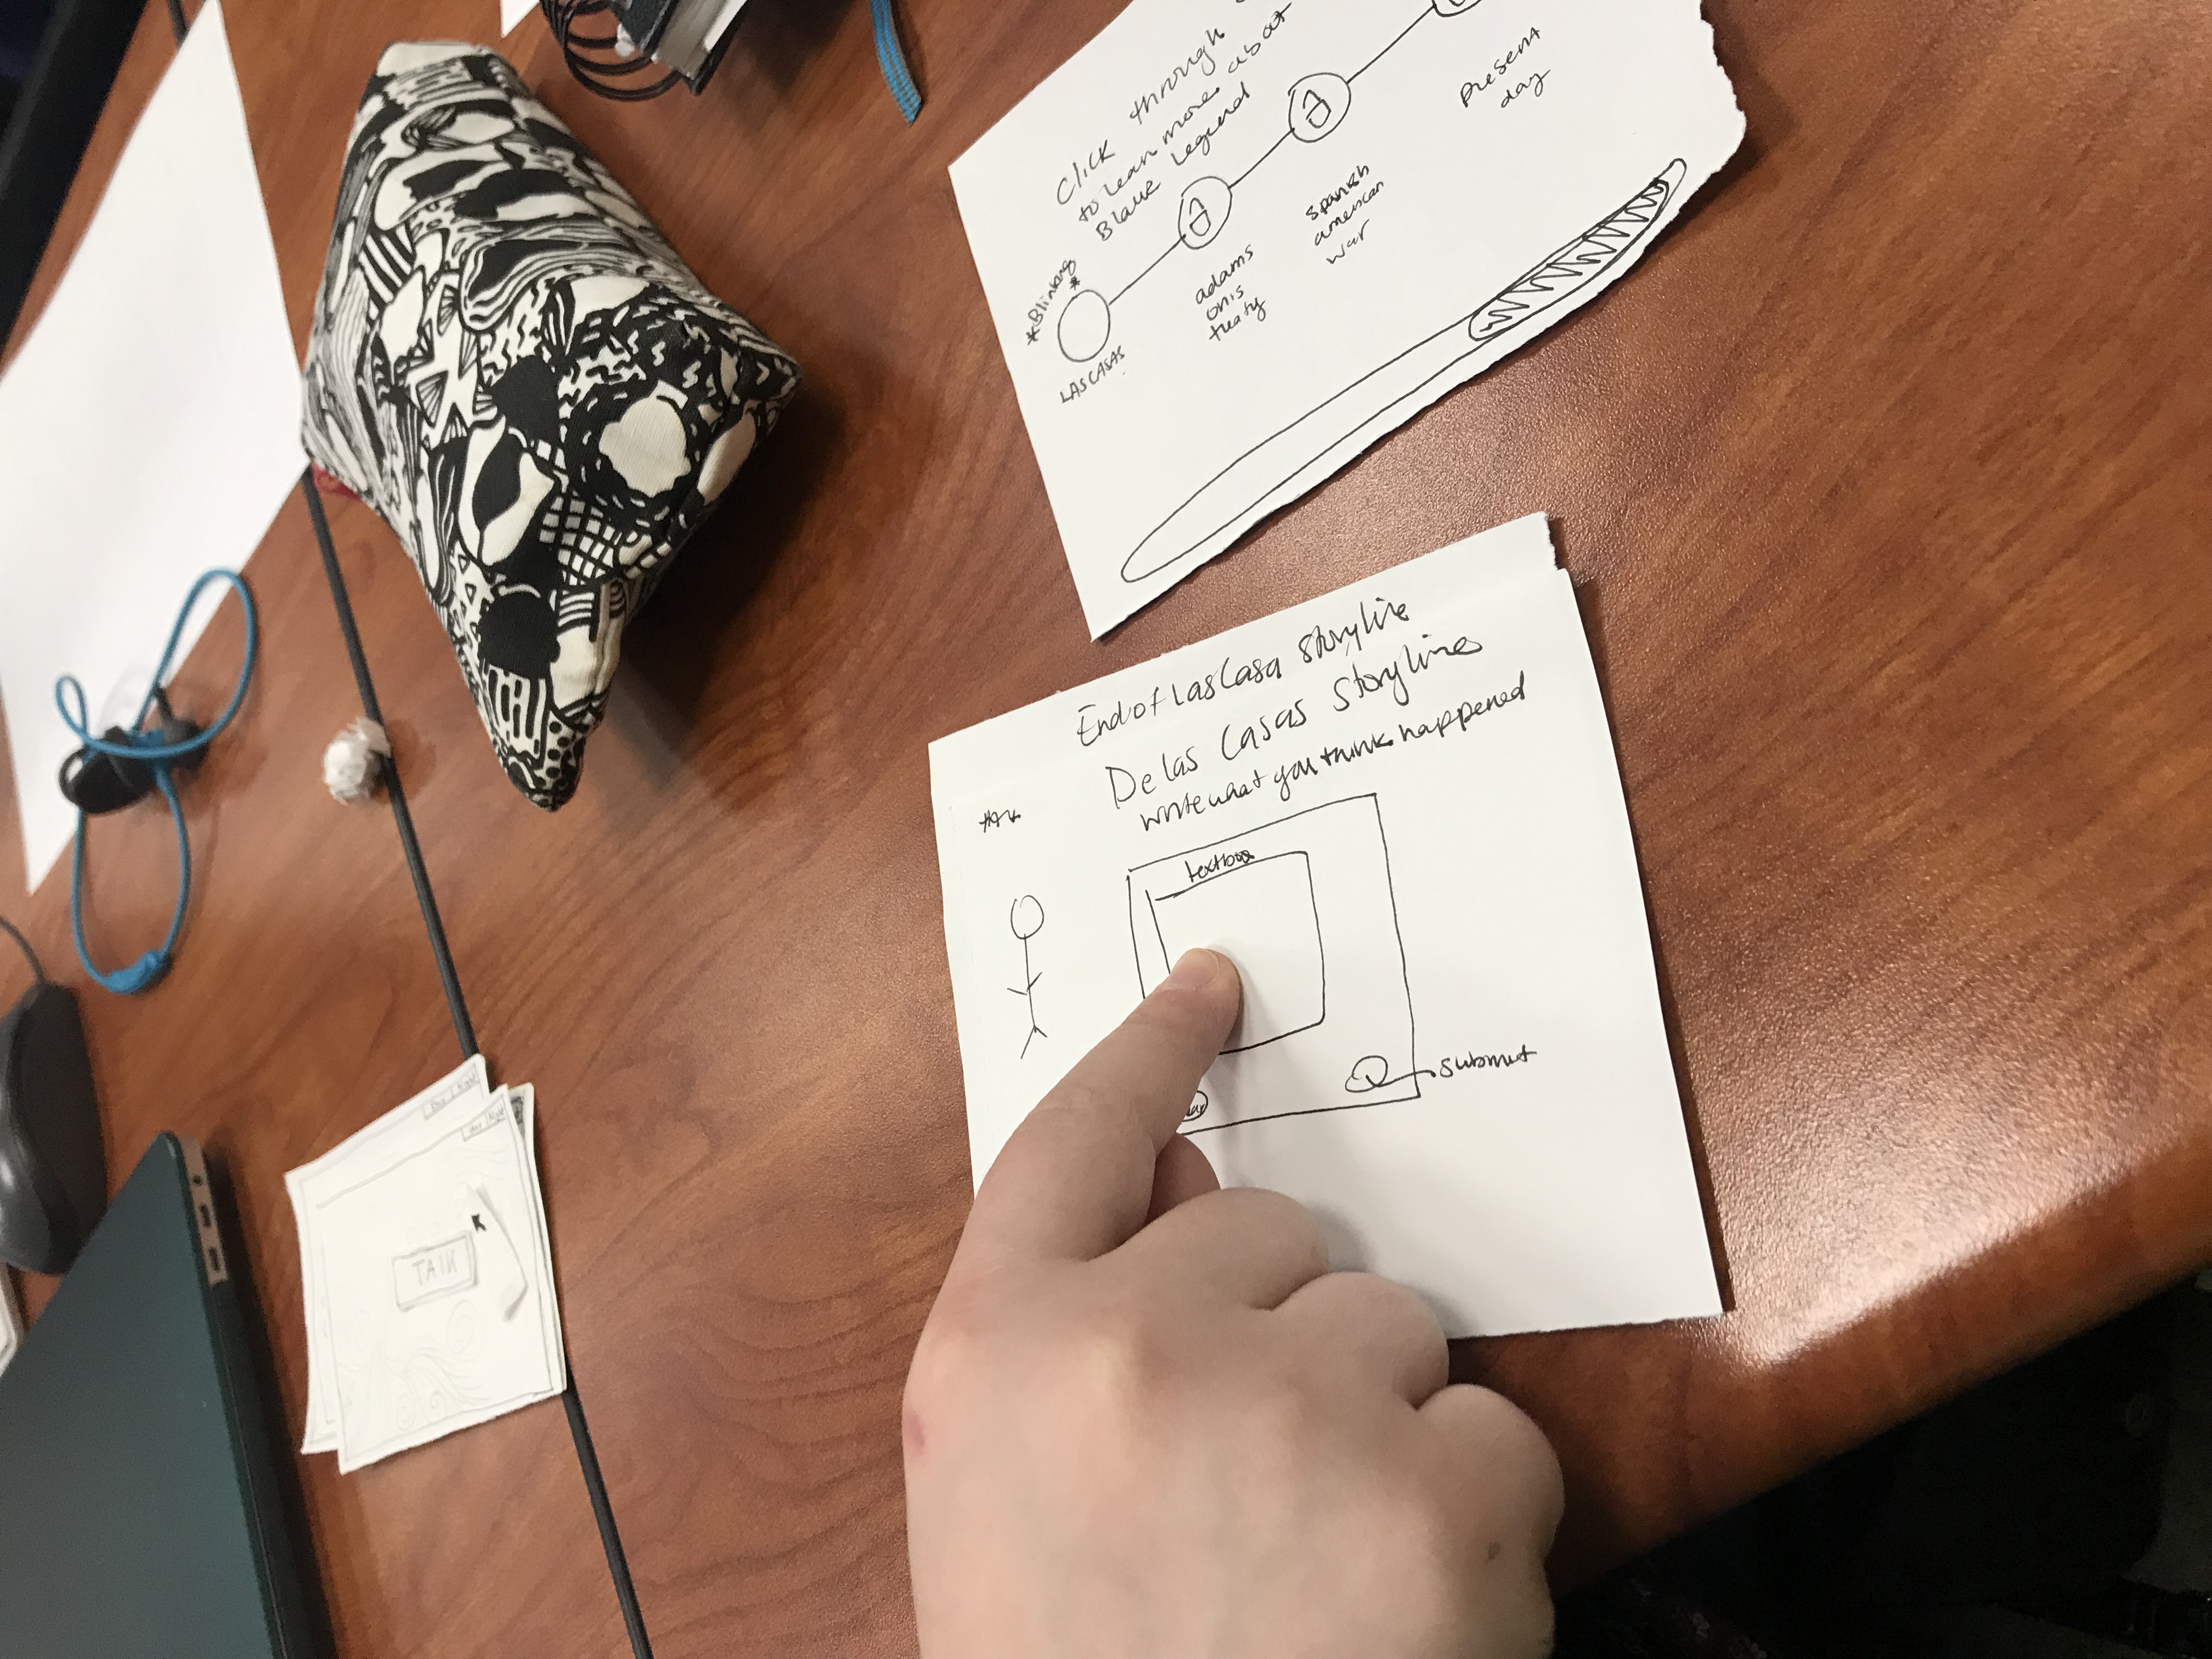 TALK
End of LasCasa storyline
De las Casas Storyline
write what you think happened
textbox
submit
Click through
to learn more about
Blakc legend
*Blinking*
LASCASAS
adams
onis
treaty
spanish
american
war
present
day